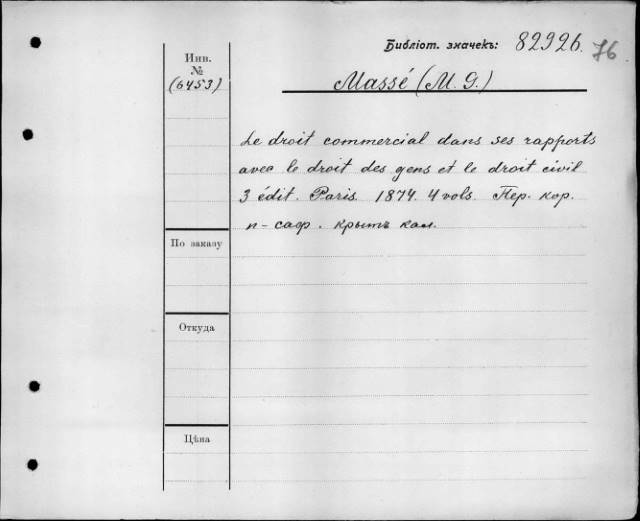 Библіот. значекъ: 82926. 76
Инв.
№
(6453)
Massé (M. G.)
Le droit commercial dans ses rapports
avec le droit des gens et le droit civil
3 édit. Paris. 1874. 4 vols. Пер. кор.
п-саф. крытъ кал.
По заказу
Откуда
Цѣна